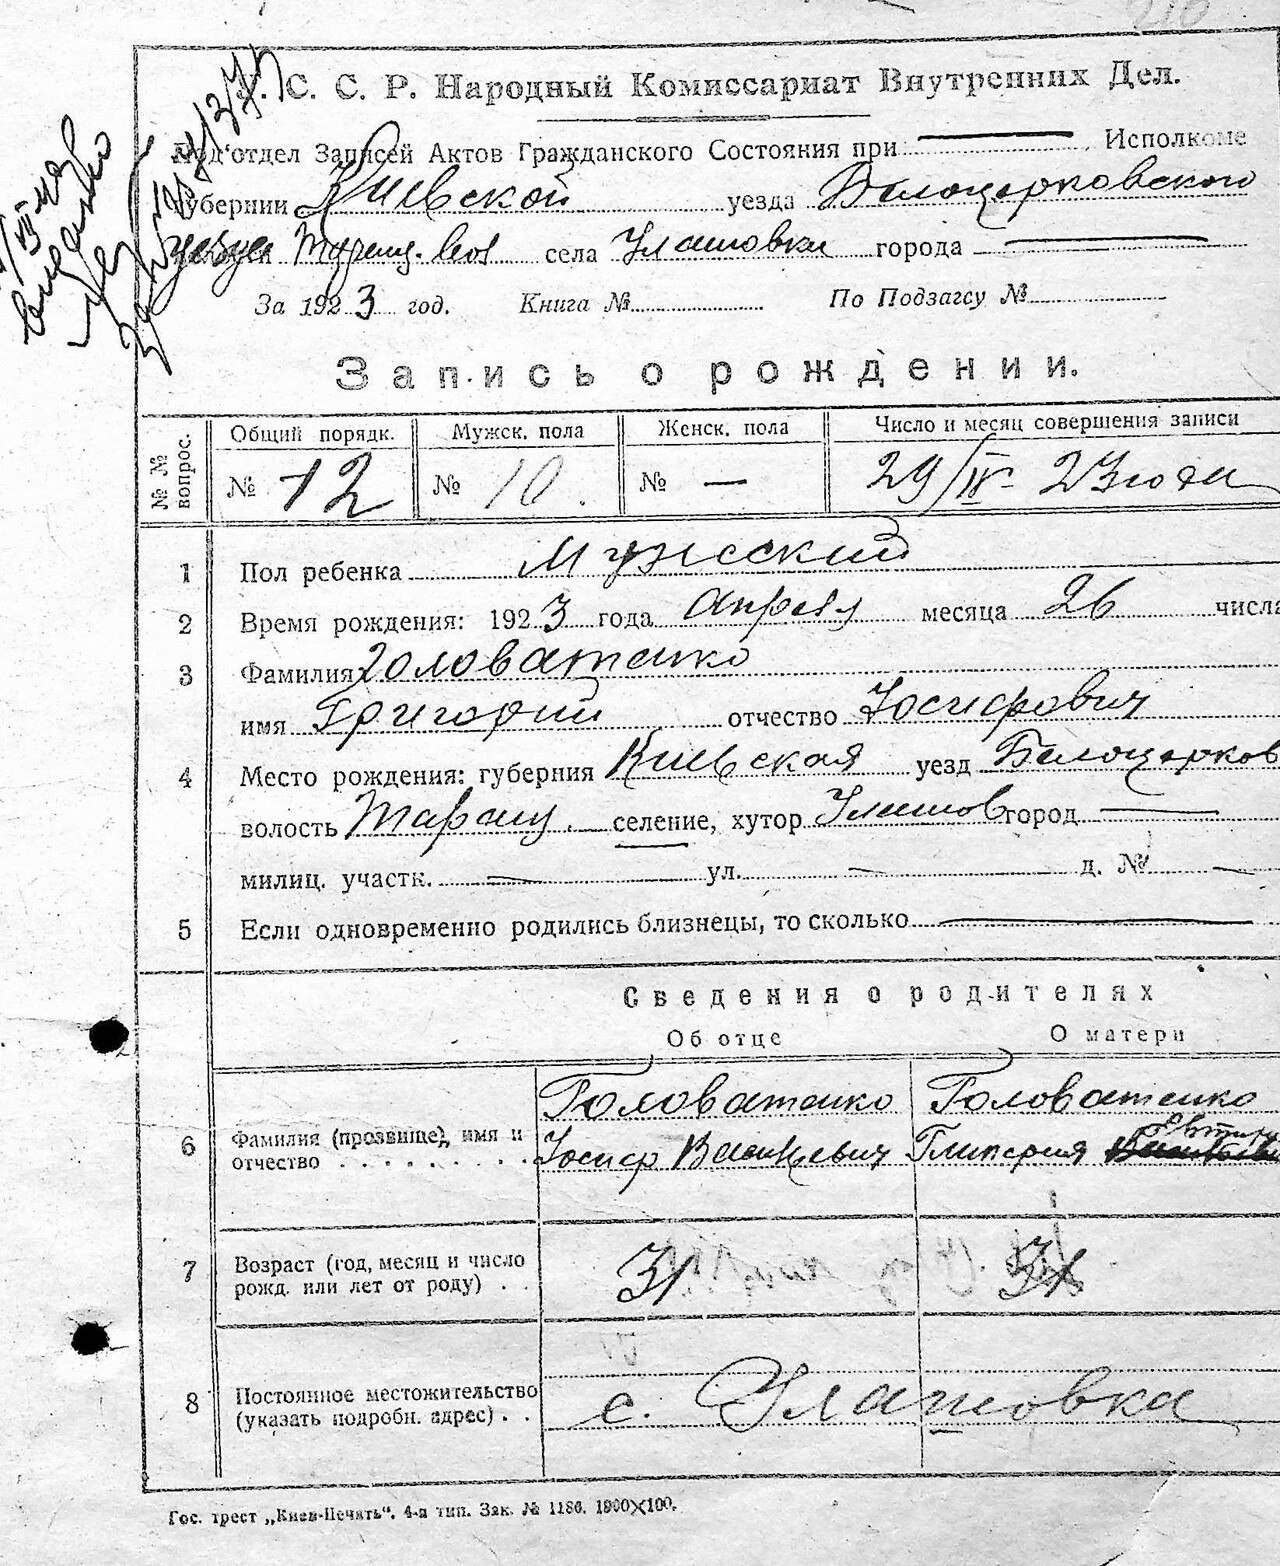 210
С. С. Р. Народный Комиссариат Внутренних Дел.
Под'отдел Записей Актов Гражданского Состояния при Исполкоме
Губернии Киевской уезда Белоцерковского
села Улашовки города
За 1923 год. Книга № По Подзагсу №
Запись о рождении.
№ № вопрос. Общий порядк. Мужск. пола Женск. пола Число и месяц совершения записи
№ 12 № 10. № — 29/IV 23 года
1 Пол ребенка Мужский
2 Время рождения: 1923 года Апреля месяца 26 числа
3 Фамилия Головатенко
имя Григорий отчество Иосифович
4 Место рождения: губерния Киевская уезд Белоцерков
волость Таращ. селение, хутор Улашов город —
милиц. участк. — ул. — д. № —
5 Если одновременно родились близнецы, то сколько —
Сведения о родителях
Об отце О матери
Головатенко Головатенко
6 Фамилия (прозвище), имя и
отчество . . . . . . . . . Иосиф Васильевич Гликерия
7 Возраст (год, месяц и число
рожд. или лет от роду) . . 31
8 Постоянное местожительство
(указать подробн. адрес) . . с. Улашовка
Гос. трест „Киев-Печать". 4-я тип. Зак. № 1186. 1900×100.